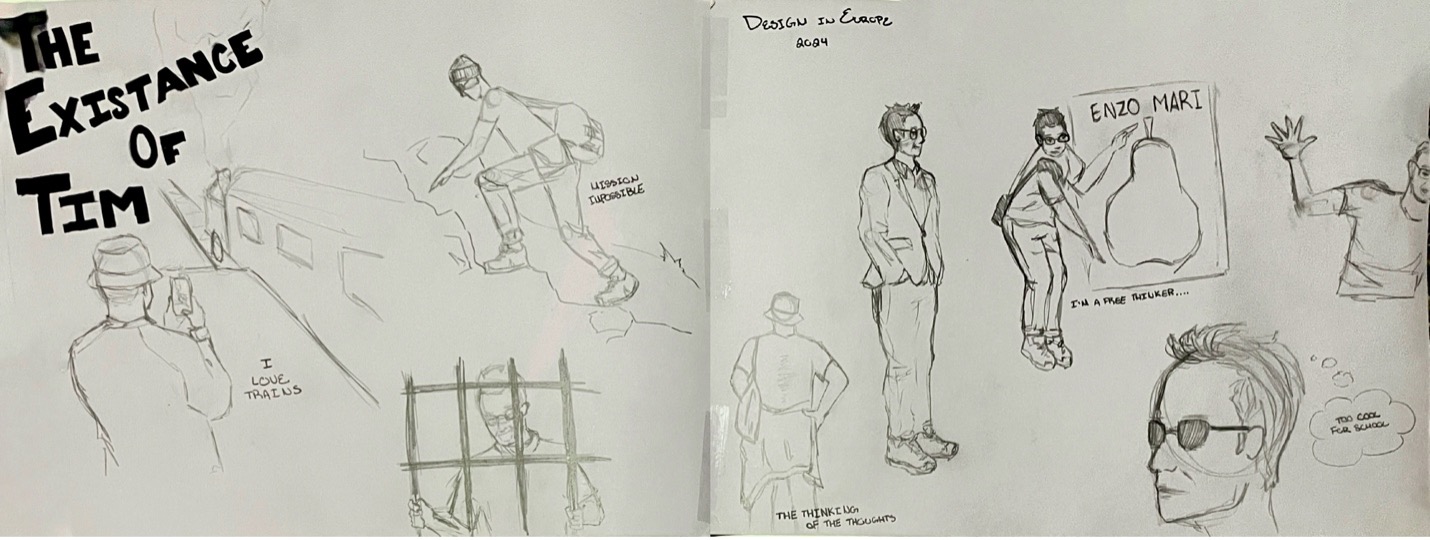 THE
EXISTANCE
OF
TIM
MISSION
IMPOSSIBLE
I
LOVE
TRAINS
DESIGN IN EUROPE
2024
ENZO MARI
I'M A FREE THINKER....
TOO COOL
FOR SCHOOL
THE THINKING
OF THE THOUGHTS